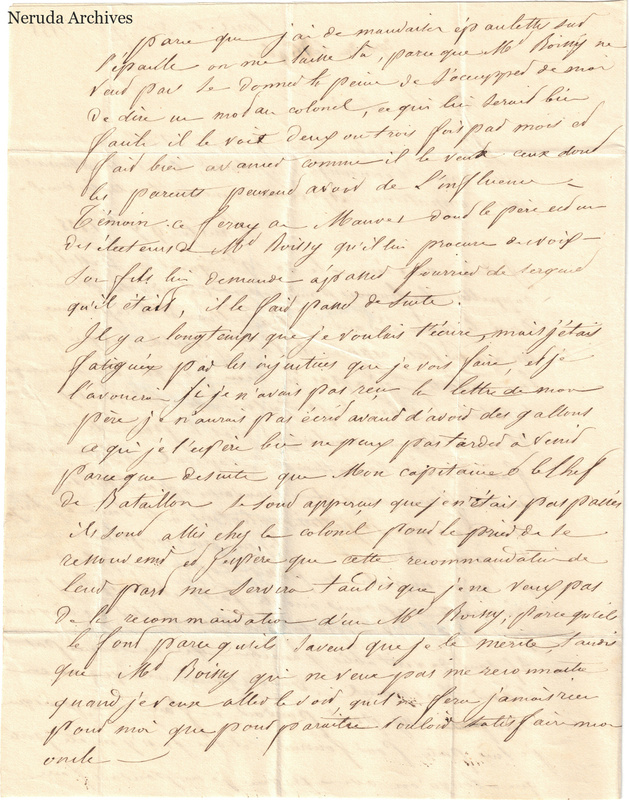 Neruda Archives
parce que j'ai de mauvaises épaulettes sud
l'épaule on me laisse là, parceque Mr Boissy ne
veud pas se donned la peine de s'occupped de moi
de dire un mod au colonel, ce qui lui seraid bien
facile il le voit deux ou trois fois pad mois et
faid bien avanced comme il le veut ceux dont
les parents peuvend avoid de L'influence
Témoin ce feray au Mauves dond le père est un
des électeurs de Mr Boissy qu'il lui procure des voix
Son fils lui demande à passed fourried de sergend
qu'il étais, il le faid passd de suite.
Il y a longtemps que je voulais t'écrire, mais j'étais
fatiguée pad les injustices que je vois faire, et je
l'avouerai si je n'avais pas reçu la lettre de mon
père je n'aurais pas écrid avand d'avoid des gallons
ce qui je l'espère bien ne peux pas tarded à venid
parce que desuite que Mon capitaine & le Chef
de Bataillon se sond apperçus que je n'étais pas passés
ils sond allés ched le colonel poud le pried de se
ressouvenid et j'espère que cette recommandation de
leud pard me servira tandis que je ne veux pas
de la recommandation d'un Mr Boissy, parcequ'ils
le font parcequ'ils savend que je le mérite tandis
que Mr Boissy qui ne veux pas me reconnaitre
quand je veux alled le void qui ne fera jamais rien
poud moi que poud paraitre vouloid satisfaire mon
oncle